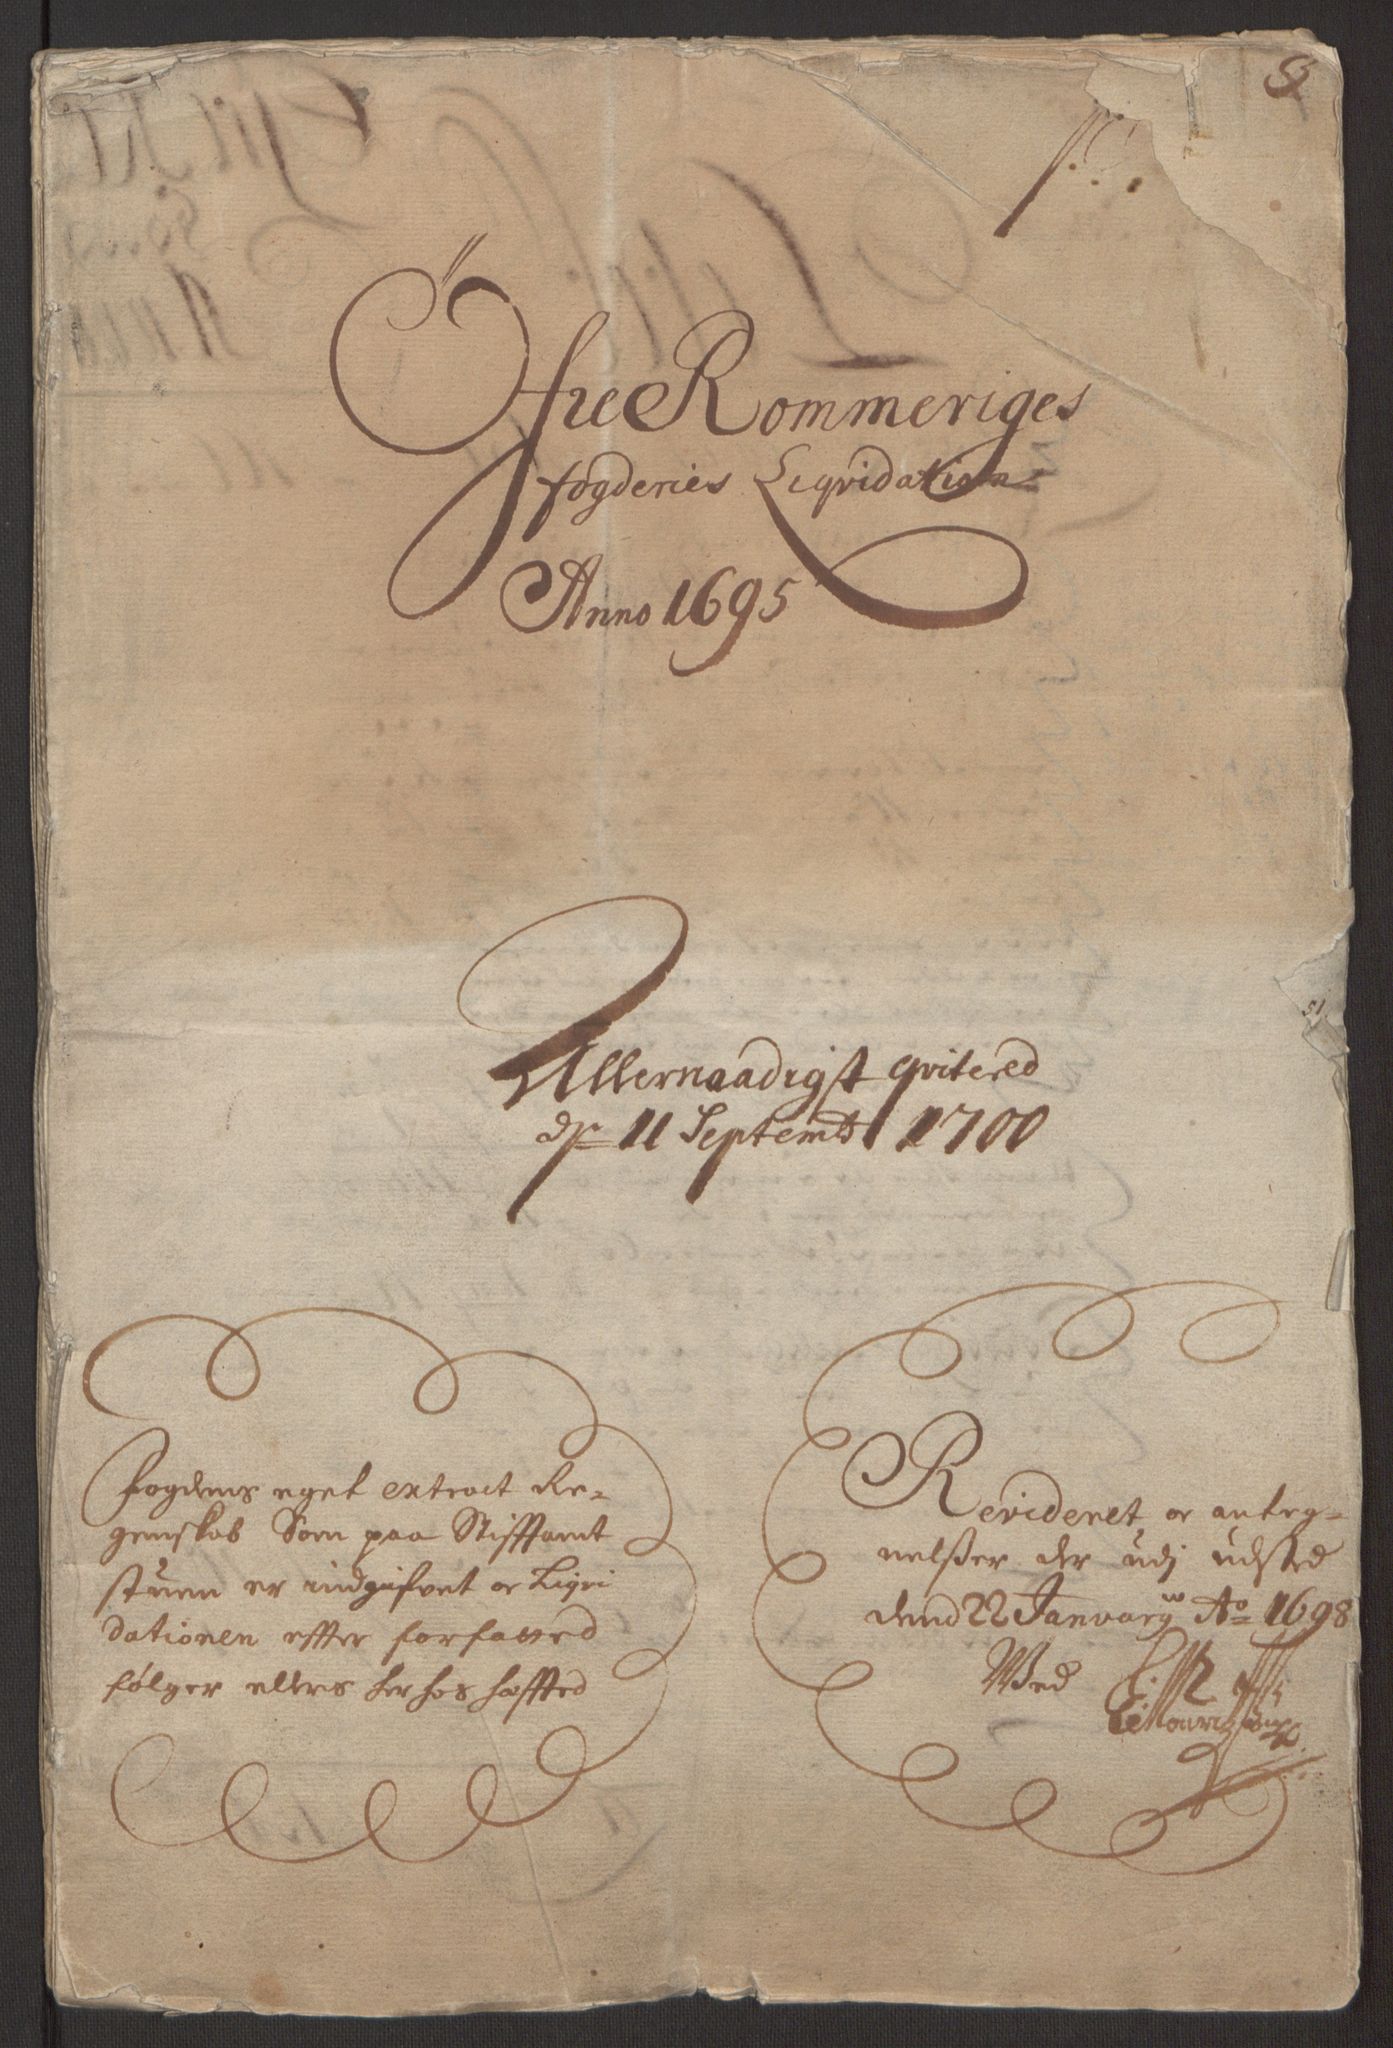 Øfre Rommeriges
fogderies Liqvidation
Anno 1695
Allernaadigst qvitered
dn 11 Septemb 1700
fogdens eget extract Re-
genskab Som paa Stifftamt
stuen er indgifvet oc Liqvi
dationen effter forfatted
følger ellers herhos heffted
Revideret oc anteg-
nelsser der udj udsted
dend 22 Januarij Ao 1698
Wed
51